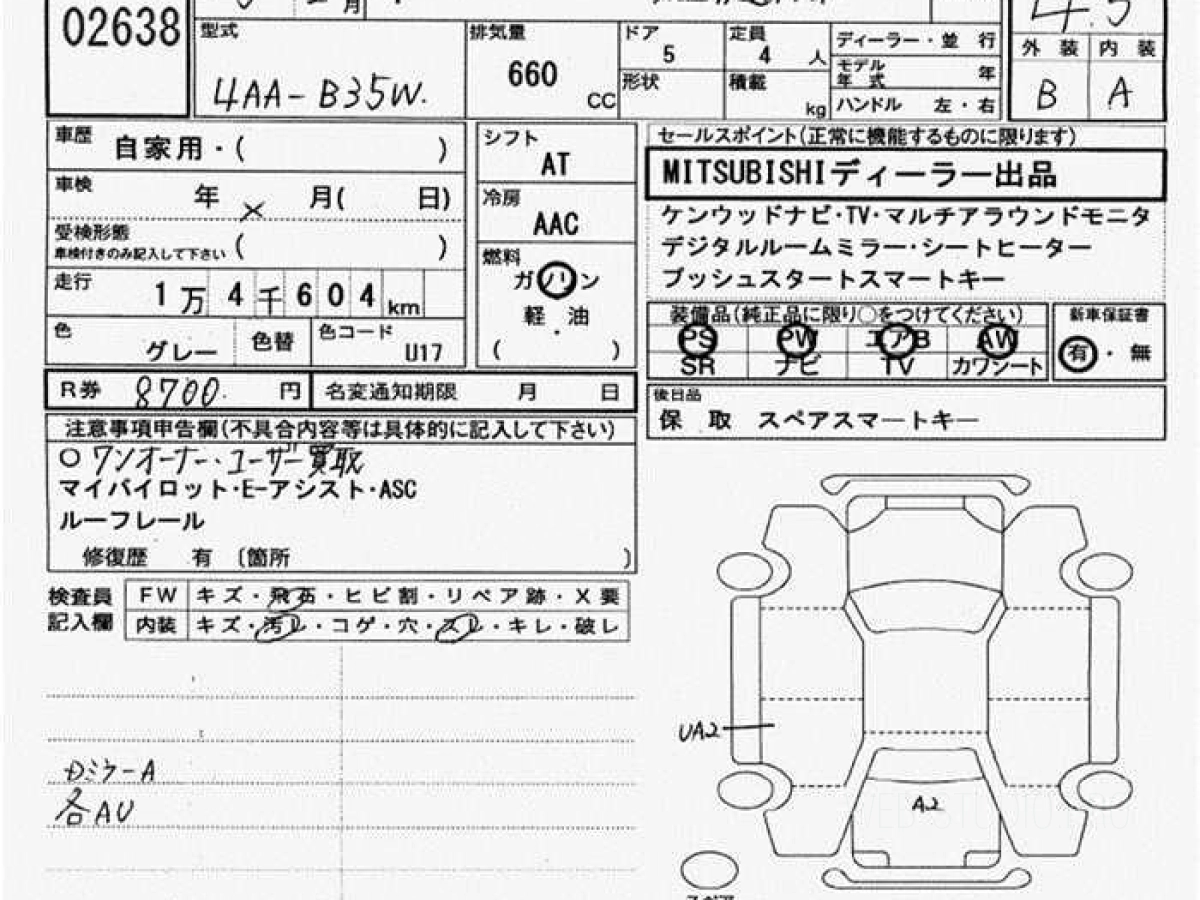 02638
型式
4AA-B35W.
排気量
660
CC
ドア
5
形状
定員
4 人
積載
kg
ディーラー・並 行
モデル
年 式 年
ハンドル 左・右
4.5
外 装 内 装
B A
車歴 自家用・( )
車検 年 × 月( 日)
受検形態
車検付きのみ記入して下さい ( )
走行 1万4千604km
色 グレー
色替
色コード
U17
シフト
AT
冷房
AAC
燃料
ガソリン
軽・油
( )
セールスポイント(正常に機能するものに限ります)
MITSUBISHIディーラー出品
ケンウッドナビ・TV・マルチアラウンドモニタ
デジタルルームミラー・シートヒーター
プッシュスタートスマートキー
装備品(純正品に限り〇をつけてください)
PS PW エアB AW
SR ナビ TV カワシート
新車保証書
有・無
R券 8700. 円 名変通知期限 月 日
後日品
保 取 スペアスマートキー
注意事項申告欄(不具合内容等は具体的に記入して下さい)
○ワンオーナー・ユーザー買取
マイパイロット・E-アシスト・ASC
ルーフレール
修復歴 有 〔箇所 )
検査員
記入欄
FW キズ・飛石・ヒビ割・リペア跡・X要
内装 キズ・汚レ・コゲ・穴・スレ・キレ・破レ
UA2
A2
各AU